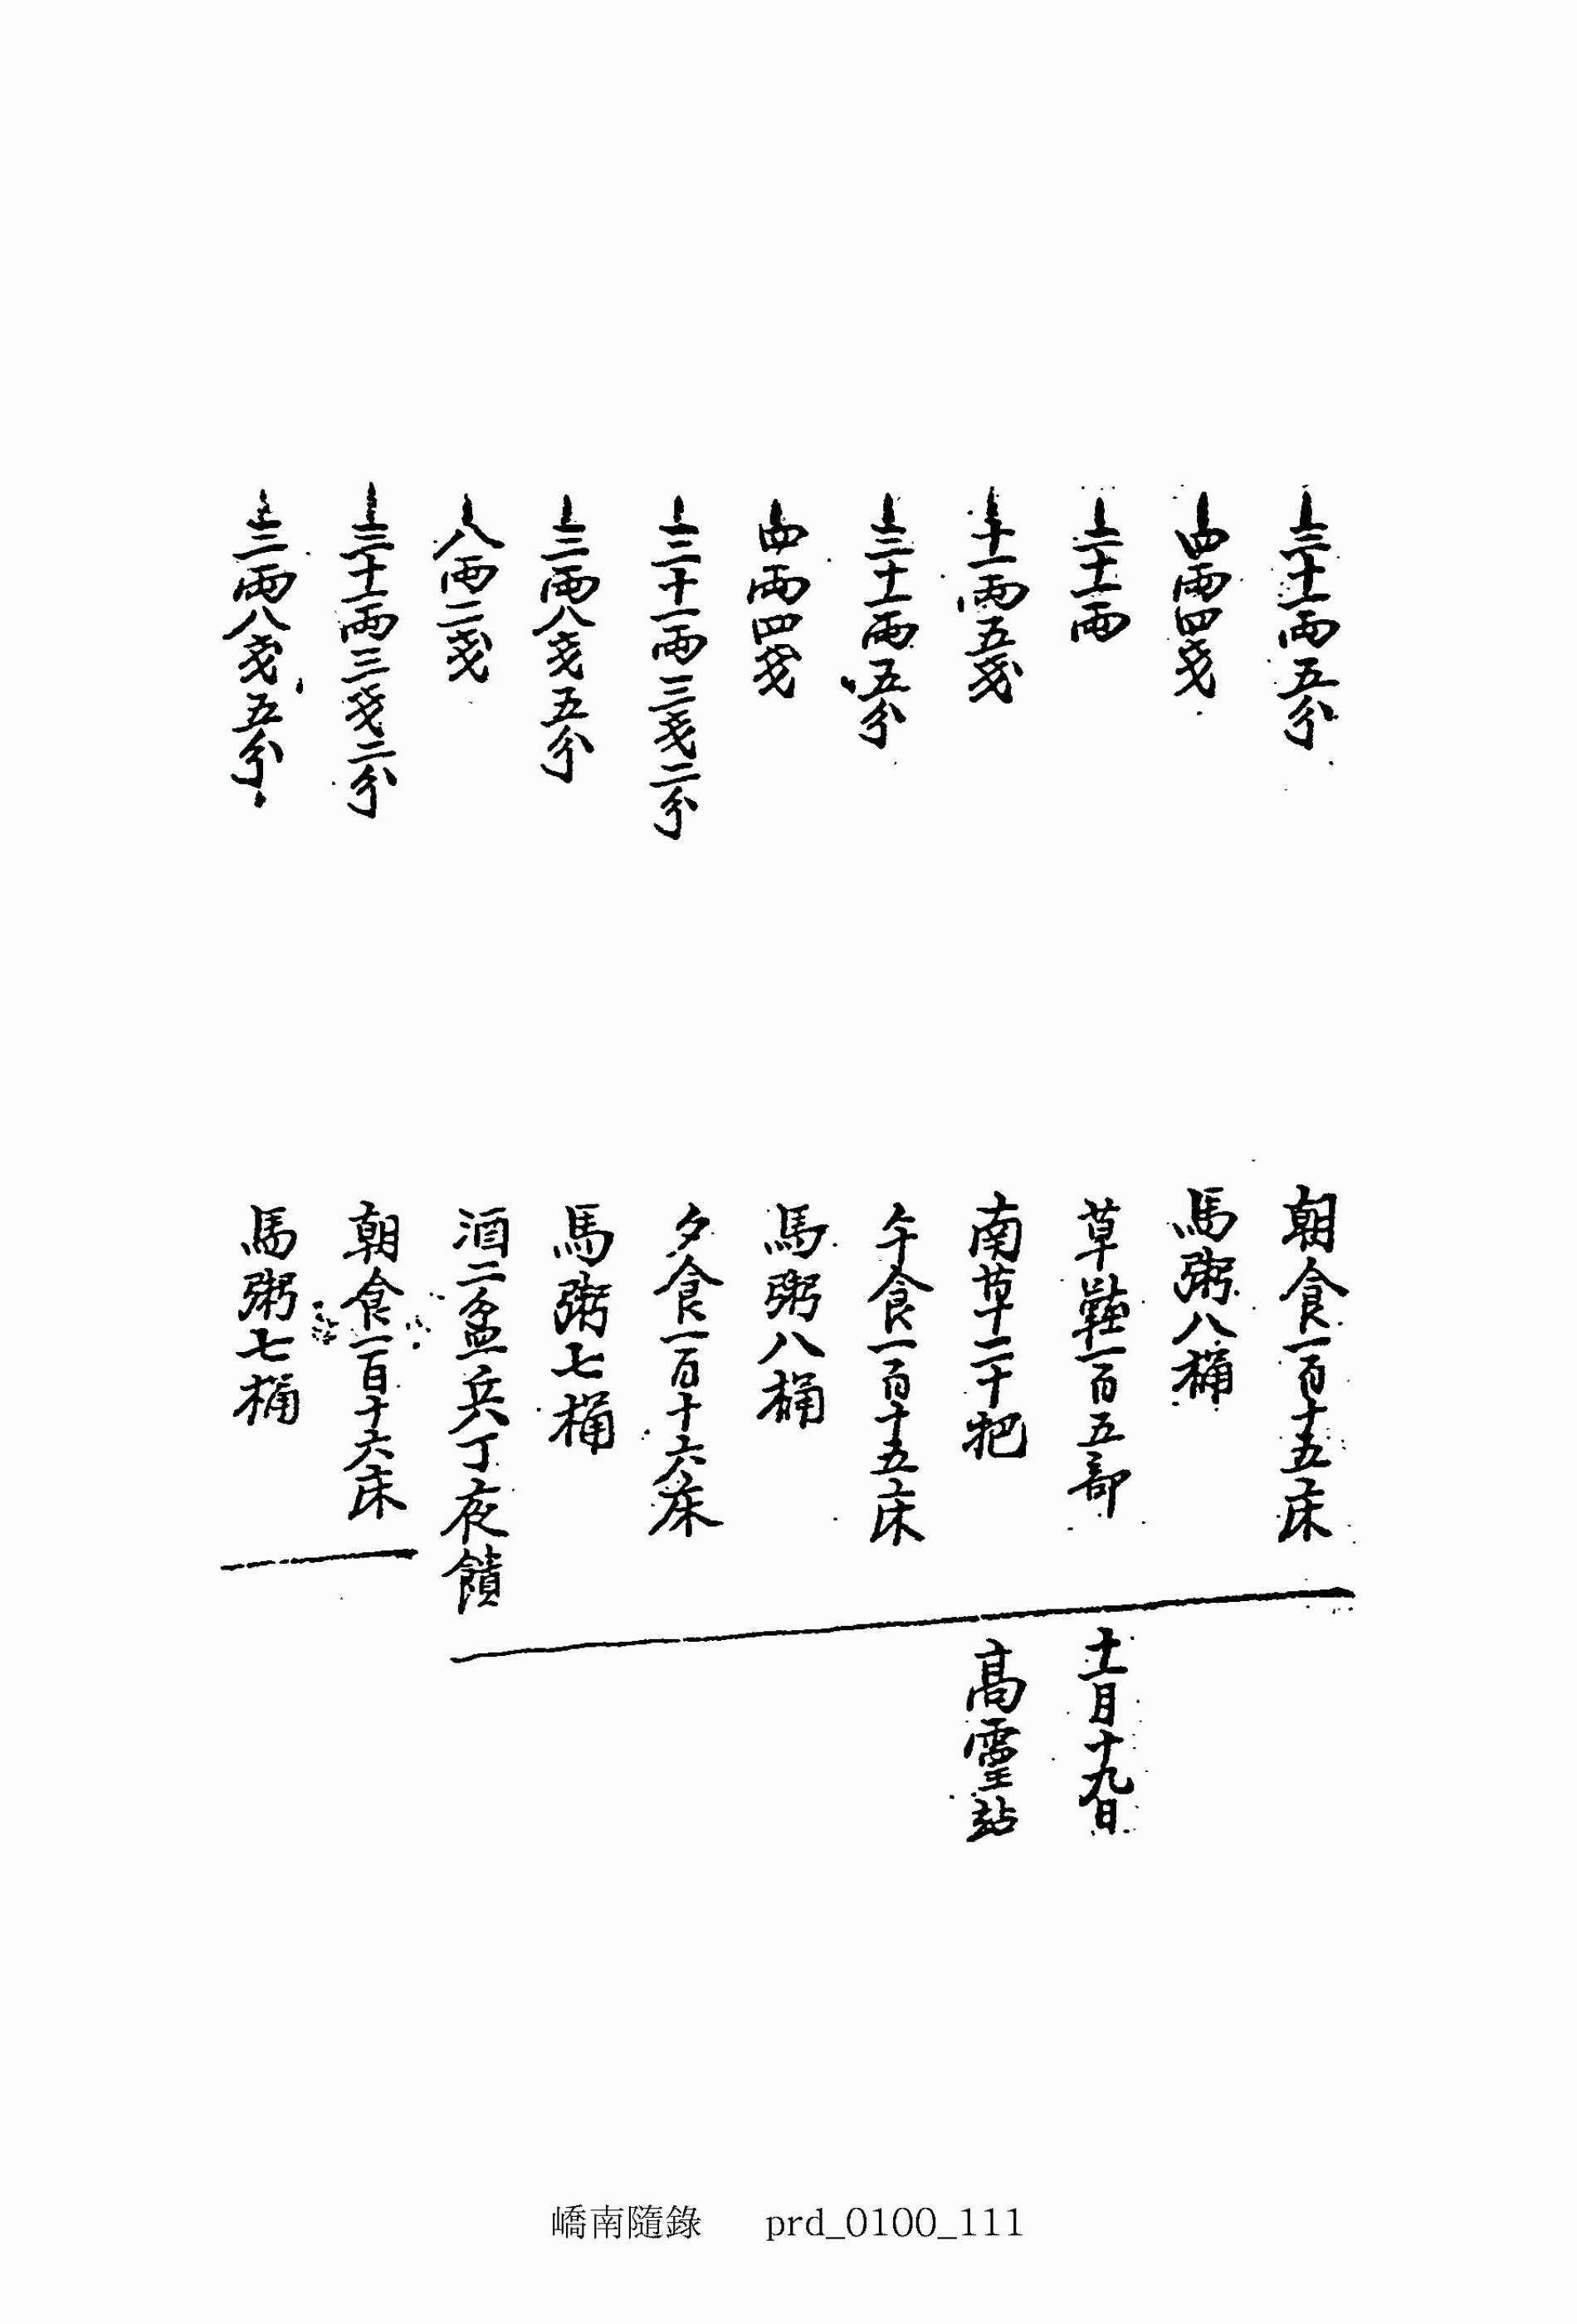 三十一兩五分 朝食一百十五床
四兩四戔 馬粥八桶
二十一兩 草鞋一百五部 十一月十九日
十一兩五戔 南草二十把 高靈站
三十一兩五分 午食一百十五床
四兩四戔 馬粥八桶
三十一兩三戔二分 夕食一百十六床
三兩八戔五分 馬粥七桶
八兩二戔 酒二盆兵丁夜饋
三十一兩三戔二分 朝食一百十六床
三兩八戔五分 馬粥七桶
嶠南隨錄 prd_0100_111